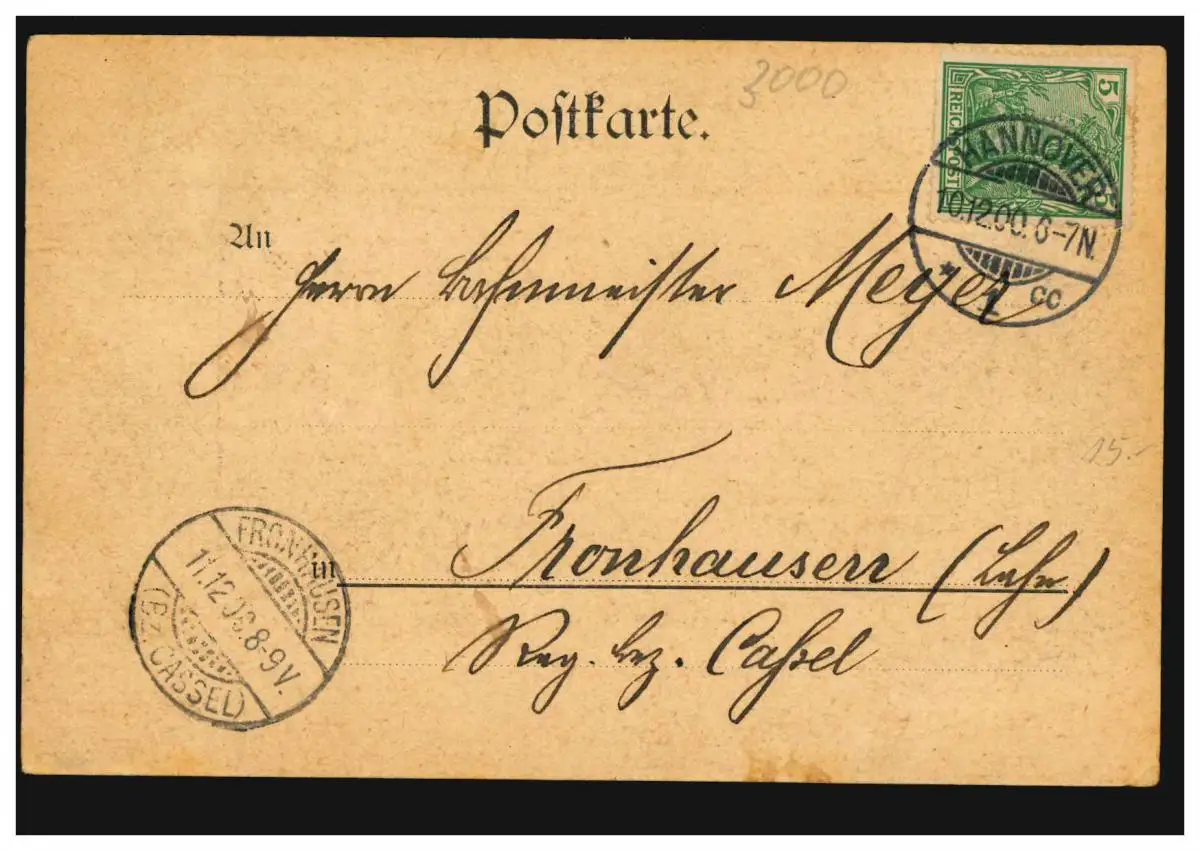 3000
Postkarte.
5
REICHSPOST
5
HANNOVER
10.12.00. 6-7N.
* 1 CC
An
Herrn Bahnmeister Meyer
15.-
Fronhausen (Lahn)
in
Reg. bez. Caßel
FRONHAUSEN
11.12.00. 8-9V.
(Bz. CASSEL)